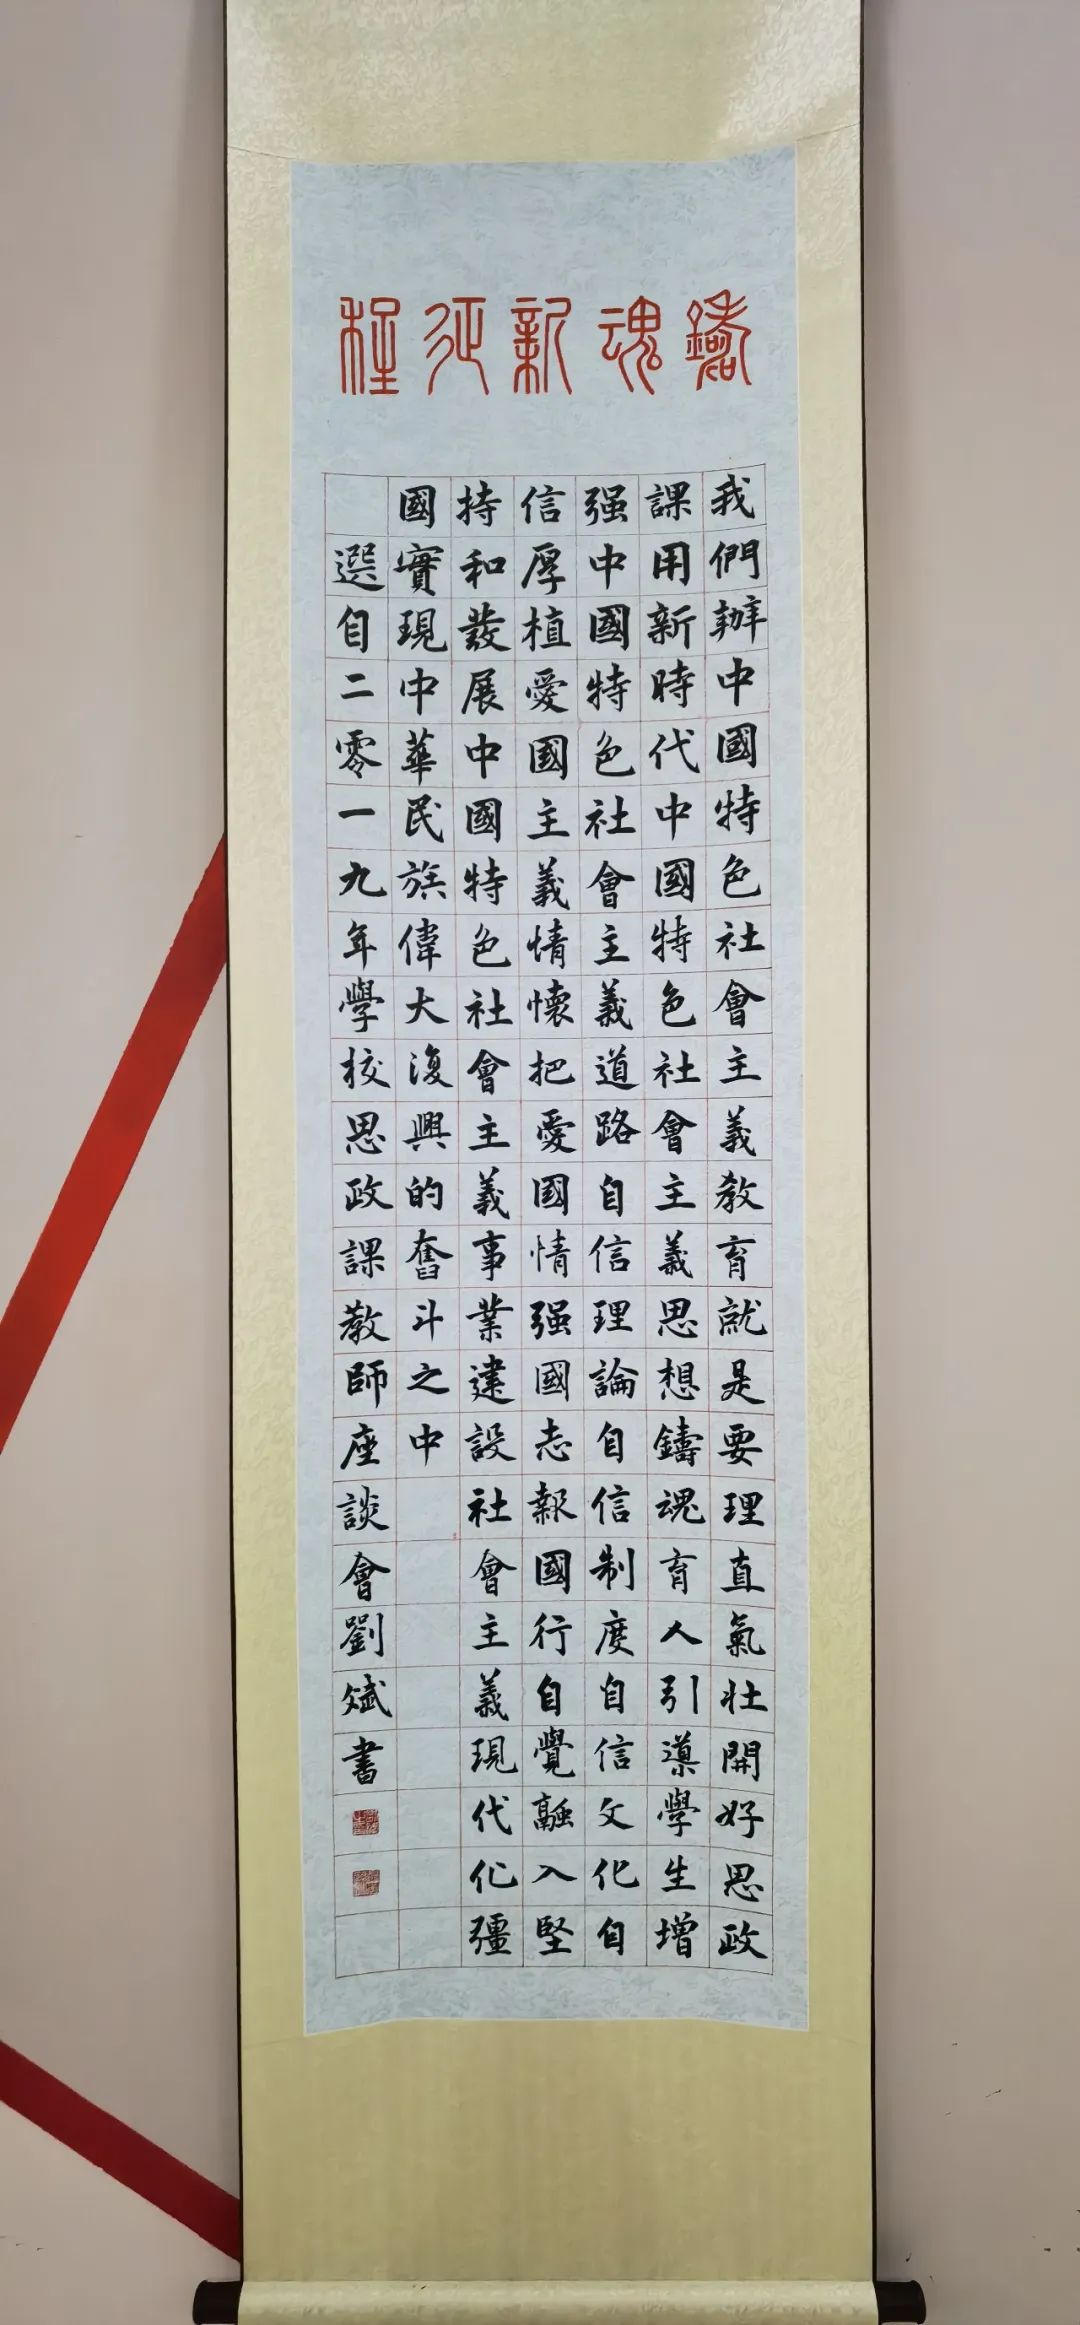 鑄魂新征程
我們辦中國特色社會主義教育就是要理直氣壯開好思政
課用新時代中國特色社會主義思想鑄魂育人引導學生增
强中國特色社會主義道路自信理論自信制度自信文化自
信厚植愛國主義情懷把愛國情强國志報國行自覺融入堅
持和發展中國特色社會主義事業建設社會主義現代化彊
國實現中華民族偉大復興的奮斗之中
選自二零一九年學校思政課教師座談會劉斌書